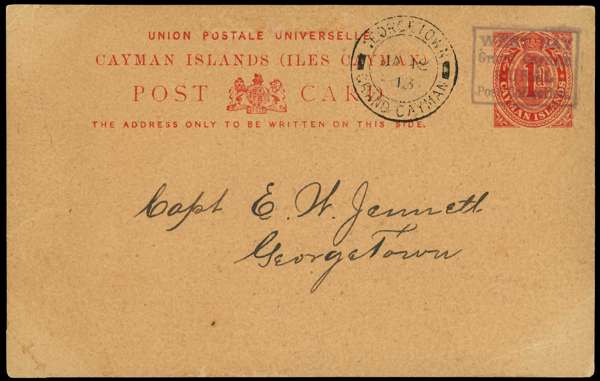 UNION POSTALE UNIVERSELLE
CAYMAN ISLANDS (ILES CAYMAN)
POST CARD
THE ADDRESS ONLY TO BE WRITTEN ON THIS SIDE.
GEORGETOWN
12
13
GRAND CAYMAN
1d
CAYMAN ISLANDS
Capt E. W. Jennett
Georgetown